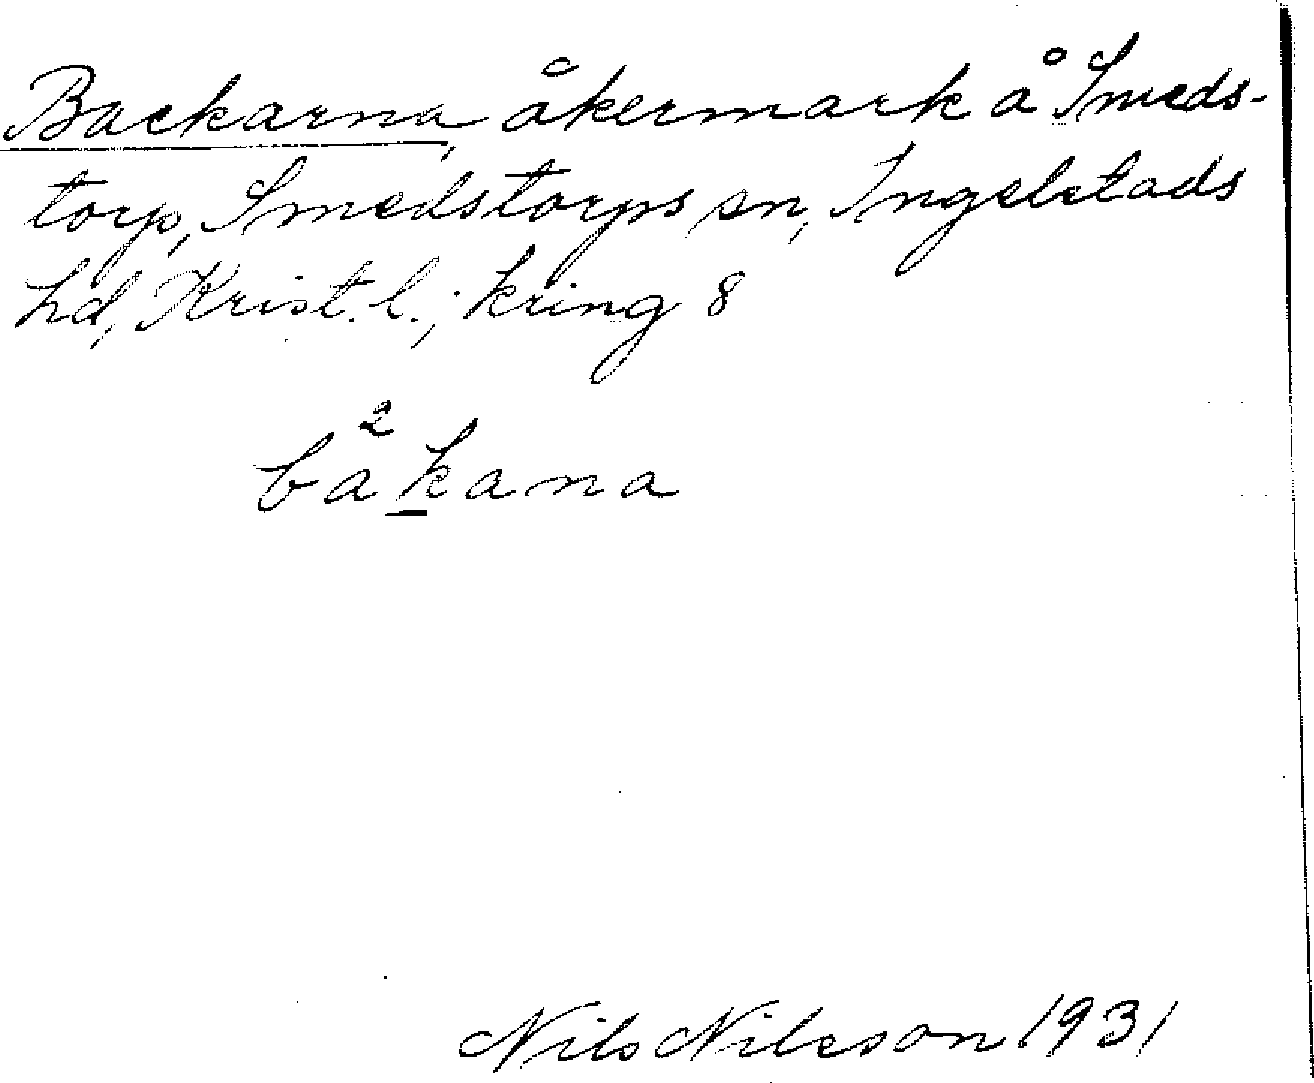 Backarna, åkermark å Smeds-
torp, Smedstorps sn, Ingelstads
hd, Krist. l.; kring 8
ba²kana
Nils Nilsson 1931